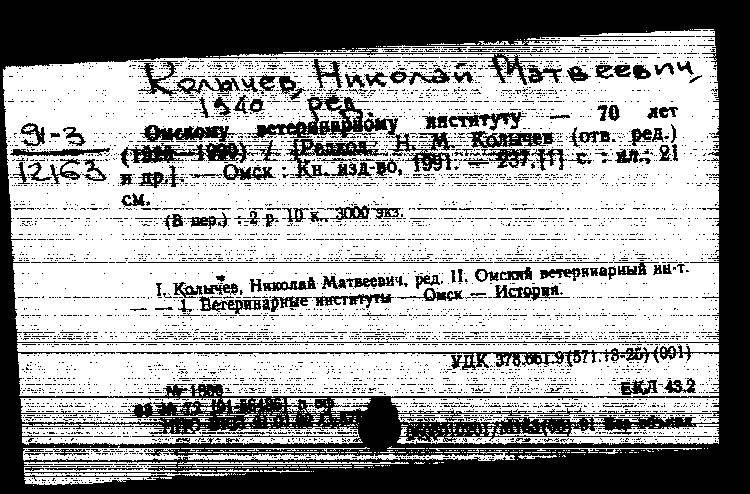 Колычев, Николай Матвеевич,
1940 ред.
91-3
12163
Омскому ветеринарному институту — 70 лет
(1918—1990) / [Редкол.: Н. М. Колычев (отв. ред.)
и др.]. — Омск : Кн. изд-во, 1991. — 237,[1] с. : ил.; 21
см.
(В пер.) : 2 р. 10 к., 3000 экз.
I. Колычев, Николай Матвеевич, ред. II. Омский ветеринарный ин-т.
— — 1. Ветеринарные институты — Омск — История.
УДК 378.661.9(571.13-25)(091)
ЕКЛ 43.2
№ 1988